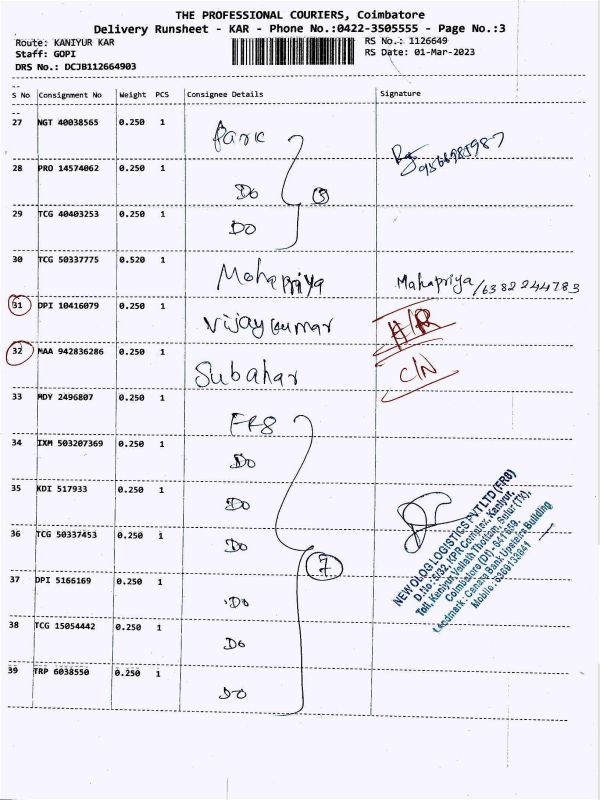 THE PROFESSIONAL COURIERS, Coimbatore
Delivery Runsheet - KAR - Phone No.:0422-3505555 - Page No.:3
Route: KANIYUR KAR
RS No.: 1126649
Staff: GOPI
RS Date: 01-Mar-2023
DRS No.: DCJB112664903
S No Consignment No Weight PCS Consignee Details Signature
27 NGT 40038565 0.250 1
28 PRO 14574062 0.250 1 Do
29 TCG 40403253 0.250 1 Do
3
30 TCG 50337775 0.520 1 Mahapriya Mahapriya/6382244783
31 DPI 10416079 0.250 1 Vijaykumar H/R
32 MAA 942836286 0.250 1 Subahar C/N
33 MDY 2496807 0.250 1 FR8
34 IXM 503207369 0.250 1 Do
35 KDI 517933 0.250 1 Do
36 TCG 50337453 0.250 1 Do
7
37 DPI 5166169 0.250 1 Do
38 TCG 15054442 0.250 1 Do
39 TRP 6038550 0.250 1 Do
NEW OLOG LOGISTICS PVT LTD (FR8)
D.No: 5/32, KPR Complex, Kaniyur,
Toll, Kaniyur, Vellath Thottam, Sulur (TK),
Coimbatore (DI) - 641 659.
Landmark: Canara Bank Upstairs Building
Mobile: